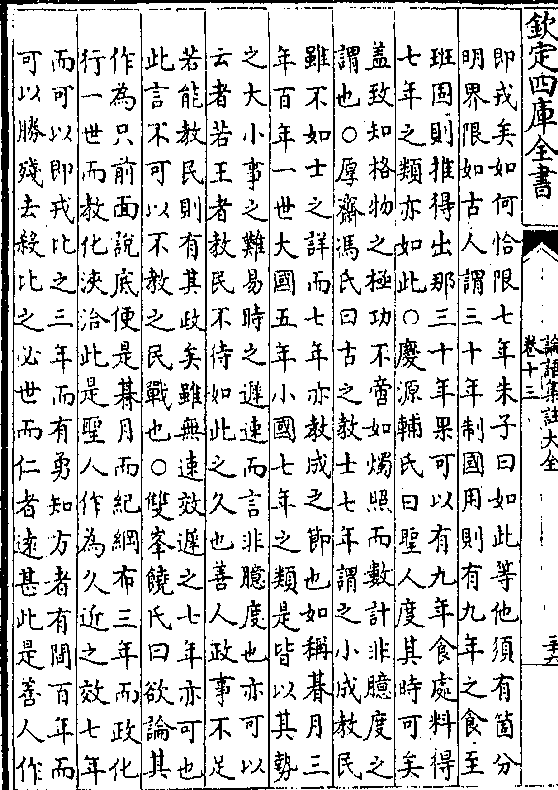 欽定四庫全書
論語集註大全
卷十三
即戎矣如何恰限七年朱子曰如此等他須有箇分
明界限如古人謂三十年制國用則有九年之食至
班固則推得出那三十年果可以有九年食處料得
七年之類亦如此○慶源輔氏曰聖人度其時可矣
盖致知格物之極功不啻如燭照而數計非臆度之
謂也○厚齋馮氏曰古之教士七年謂之小成教民
雖不如士之詳而七年亦教成之節也如稱朞月三
年百年一世大國五年小國七年之類是皆以其勢
之大小事之難易時之遲速而言非臆度也亦可以
云者若王者教民不待如此之久也善人政事不足
若能教民則有其政矣雖無速效遲之七年亦可也
此言不可以不教之民戰也○雙峯饒氏曰欲論其
作為只前面說底便是朞月而紀綱布三年而政化
行一世而教化浹洽此是聖人作為久近之效七年
而可以即戎比之三年而有勇知方者有間百年而
可以勝殘去殺比之必世而仁者遠甚此是善人作